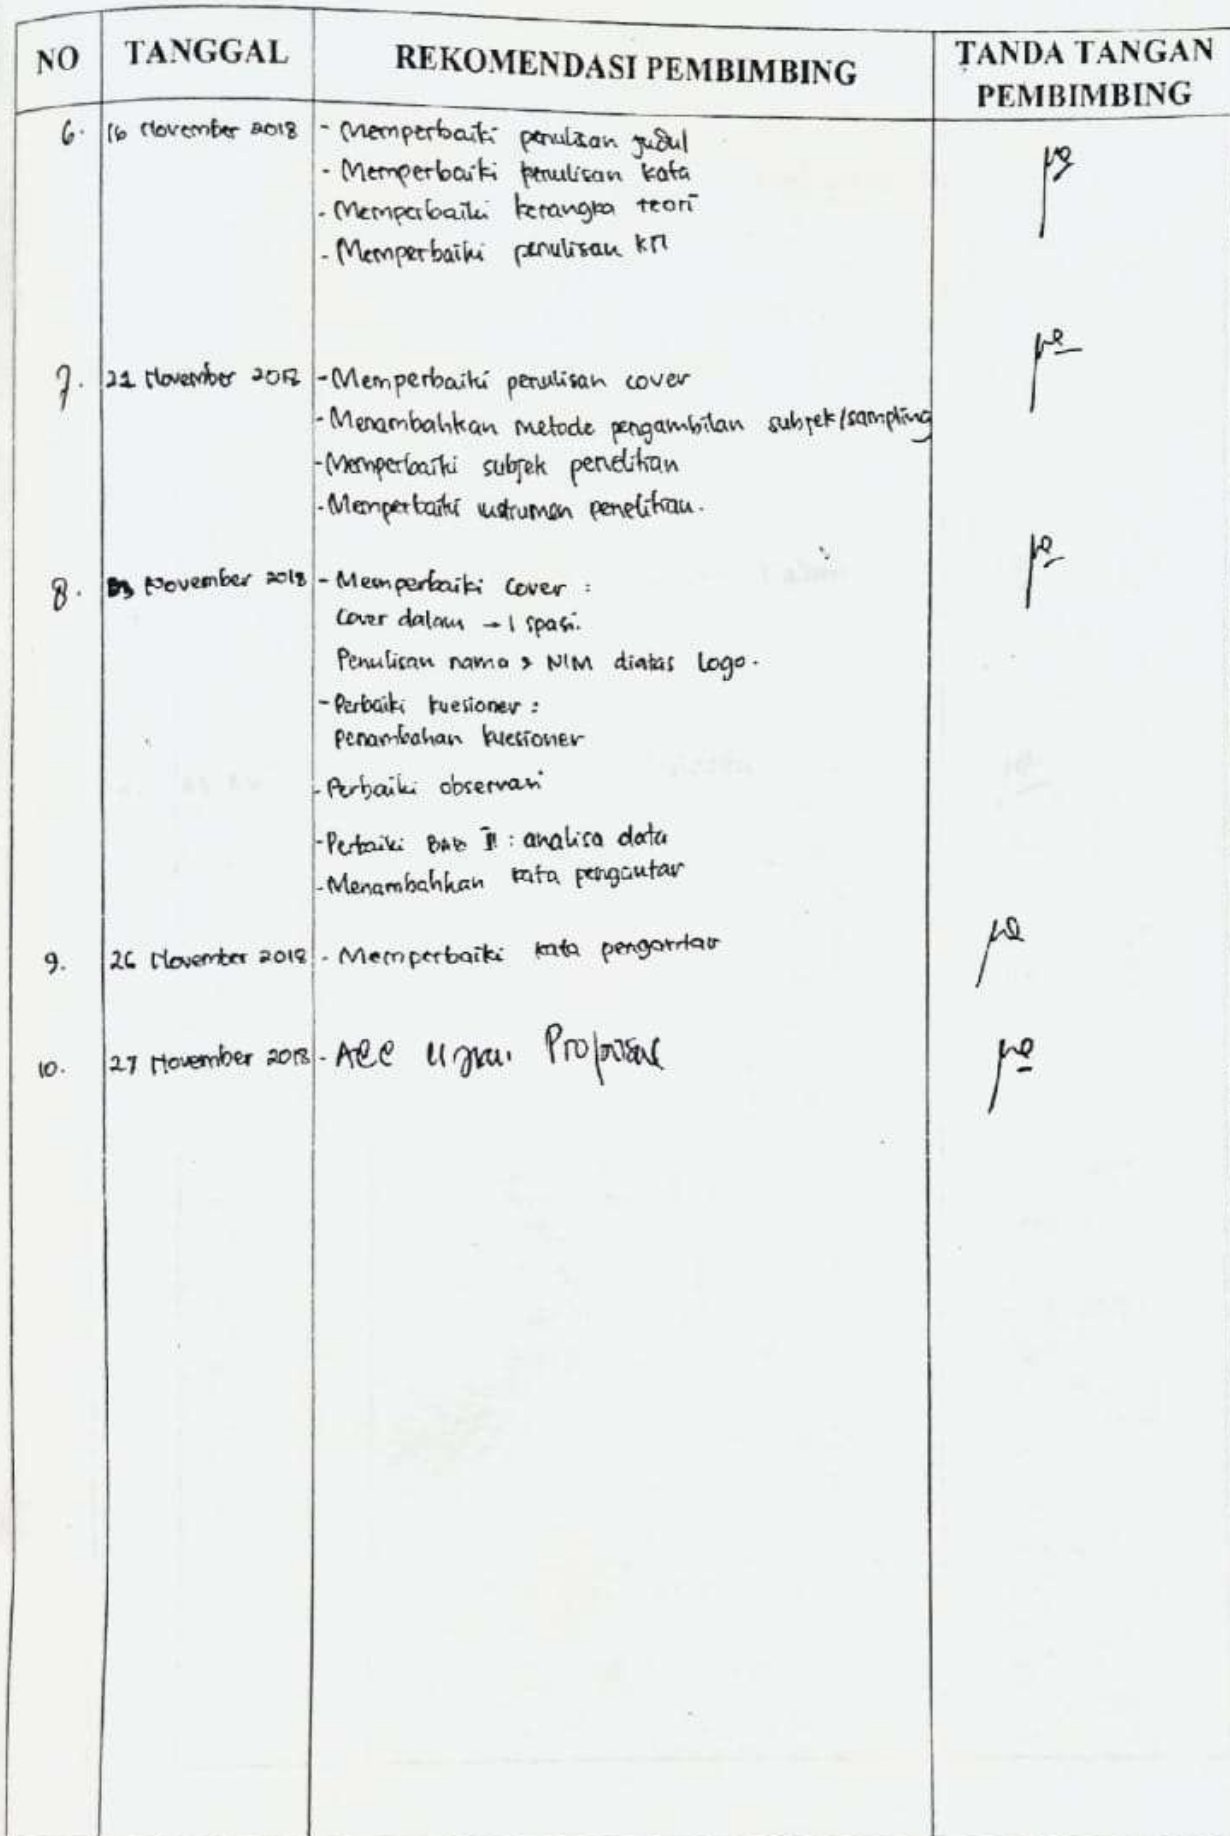 NO TANGGAL REKOMENDASI PEMBIMBING TANDA TANGAN PEMBIMBING
6. 16 November 2018 - Memperbaiki penulisan judul
- Memperbaiki penulisan kata
- Memperbaiki kerangka teori
- Memperbaiki penulisan KTI
7. 21 November 2018 - Memperbaiki penulisan cover
- Menambahkan metode pengambilan subjek/sampling
- Memperbaiki subjek penelitian
- Memperbaiki instrumen penelitian.
8. November 2018 - Memperbaiki Cover :
Cover dalam → 1 spasi.
Penulisan nama & NIM diatas Logo.
- Perbaiki kuesioner :
Penambahan kuesioner
- Perbaiki observasi
- Perbaiki BAB : analisa data
- Menambahkan kata pengantar
9. 26 November 2018 - Memperbaiki kata pengantar
10. 27 November 2018 - ACC Ujian Proposal